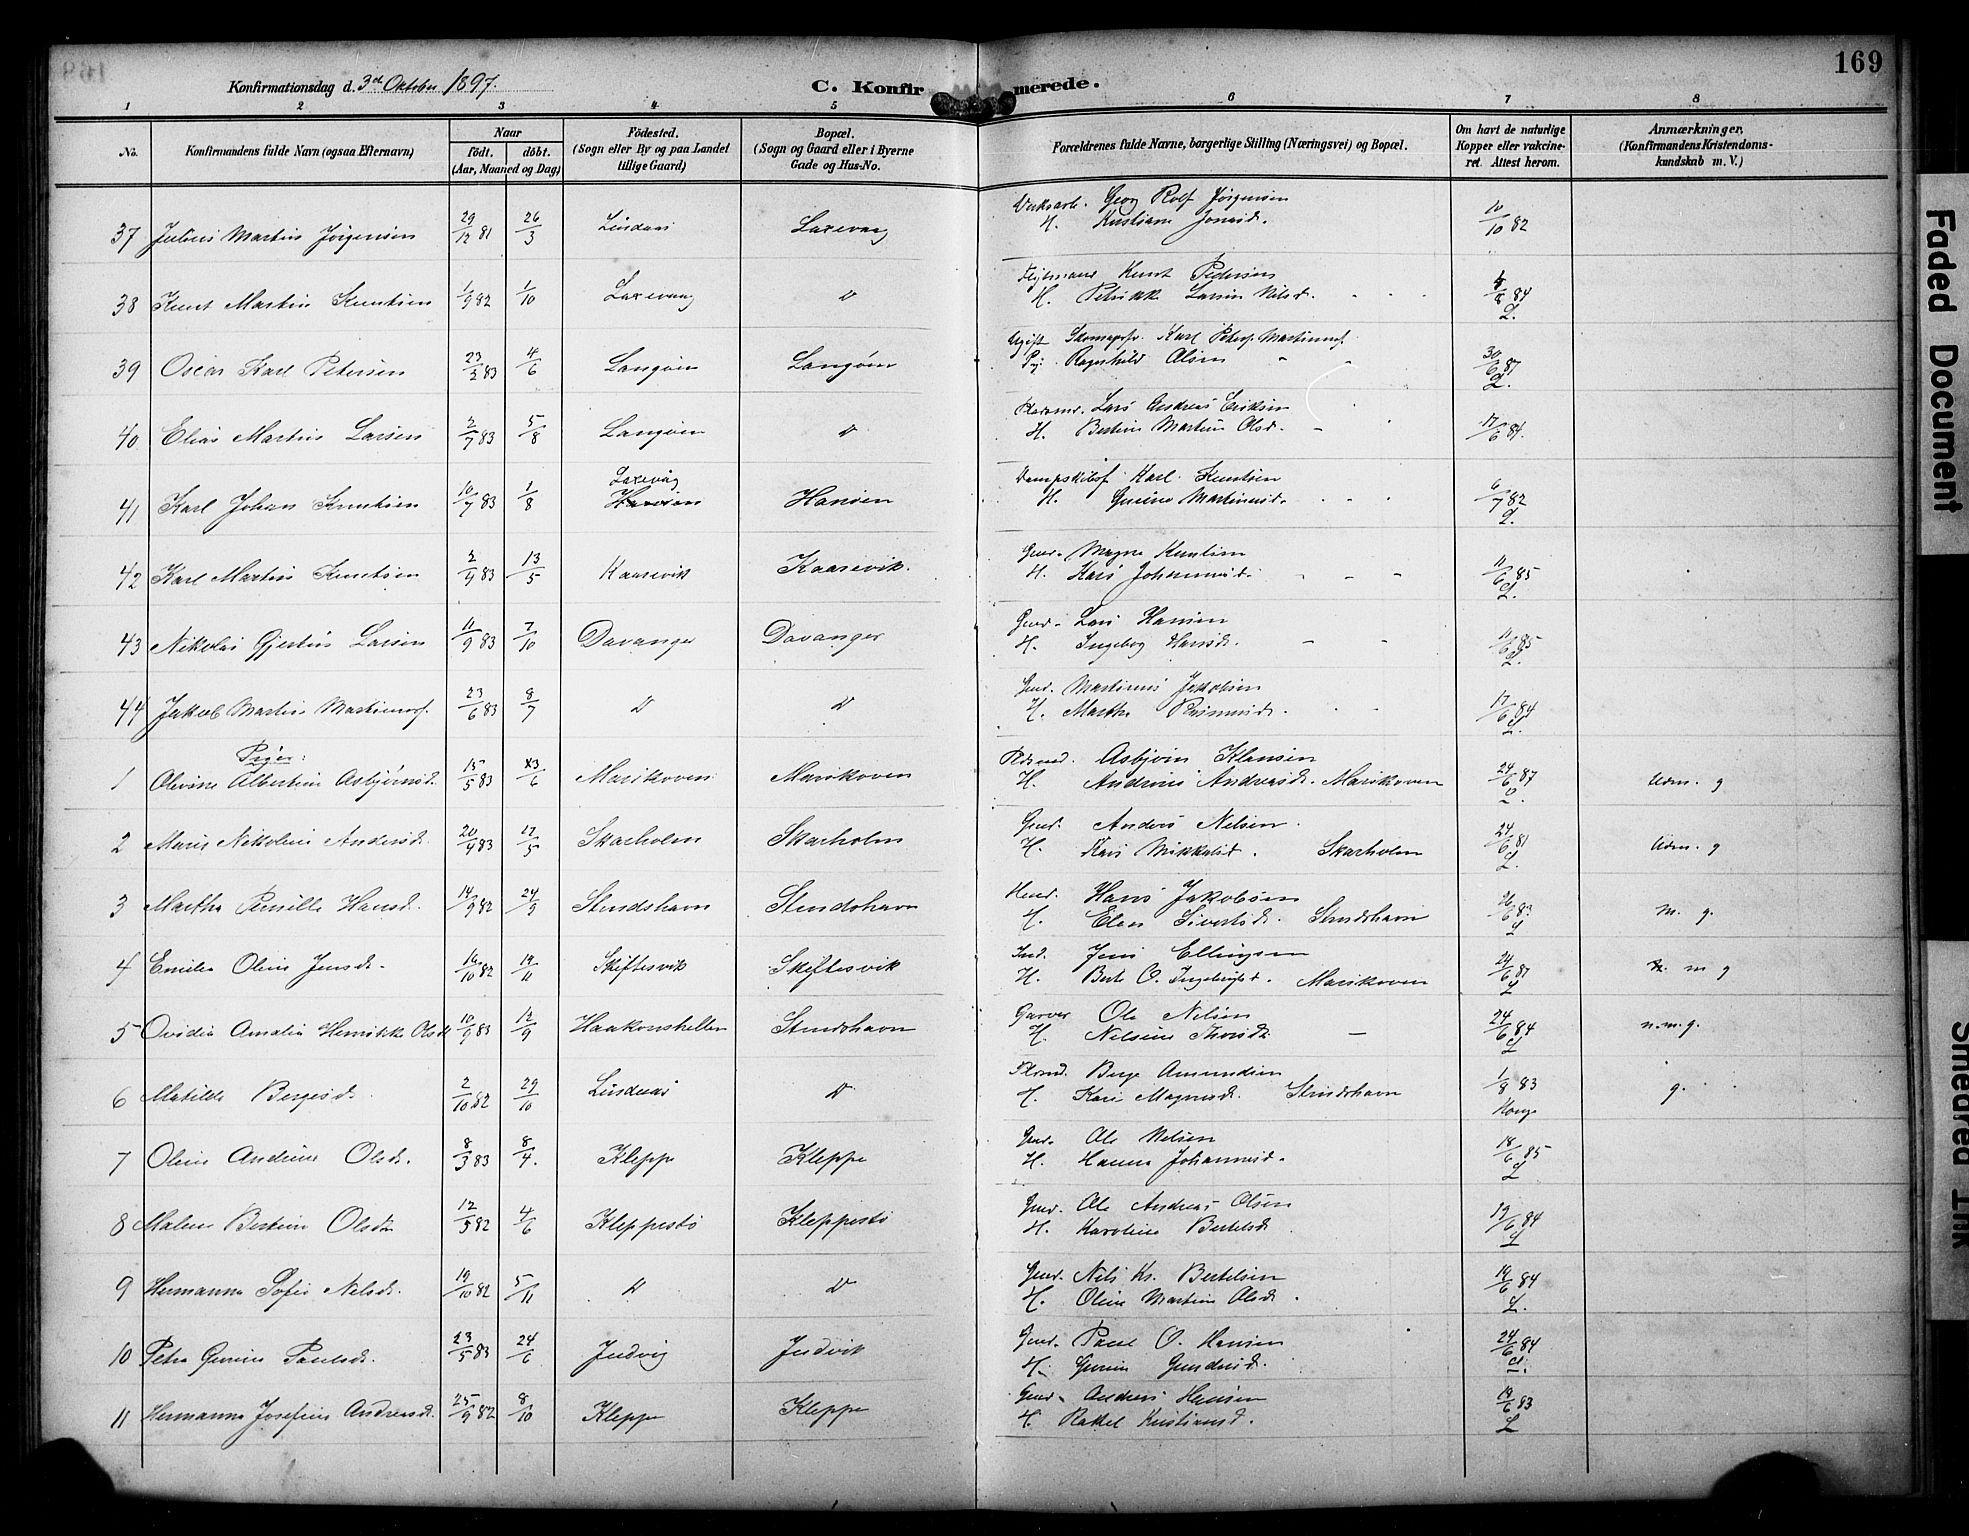 169
Konfirmationsdag d. 3d Oktober 1897. C. Konfirmerede.
1 2 3 4 5 6 7 8
No. Konfirmandens fulde Navn (ogsaa Efternavn) Naar født. døbt. (Aar, Maaned og Dag) Fødested. (Sogn eller By og paa Landet tillige Gaard) Bopæl. (Sogn og Gaard eller i Byerne Gade og Hus-No. Forældrenes fulde Navne, borgerlige Stilling (Næringsvei) og Bopæl. Om havt de naturlige Kopper eller vakcineret. Attest herom. Anmærkninger, (Konfirmandens Kristendomskundskab m. V.)
37 Julius Martin Jørgensen 29/12 81 26/3 Lindaas Laxevaag Georg Rolf Jørgensen 10/10 82
H. Kristiane Jonasd.
38 Knut Martin Knutsen 1/9 82 1/10 Laxevaag D Knut Pedersen 84
H. Petrikke Larsine Nilsd. L.
39 Oscar Karl Petersen 23/2 83 4/6 Langøen Langøen Ugift Karl Peter Martinusf.
Pig. Ragnhild Olsen 30/6 87 L.
40 Elias Martin Larsen 2/7 83 5/8 Langøen D Lars Andreas Eriksen
H. Bertine Martine Olsd. 17/6 84.
41 Karl Johan Knutsen 10/7 83 1/8 Laxevaag Hanøen Hanøen Karl Knutsen
H. Gurine Martinusd. 6/7 82 L.
42 Karl Martin Knutsen 2/4 83 13/5 Kaarevik Kaarevik. Gmd. Mogns Knutsen
H. Kari Johannesd. 11/6 85 L.
43 Nikolai Gjertin Larsen 11/9 83 7/10 Davanger Davanger Gmd. Lars Hansen
H. Ingeborg Hansd. 11/6 85 L.
44 Jakob Martin Martinusf. 23/6 83 8/7 D D Gmd. Martinus Jakobsen
H. Martha Rasmusd. 17/6 84 L.
Piger:
1 Olevine Albertine Asbjørnsd. 15/5 83 23/6 Marikoven Marikoven Asbjørn Klausen
H. Andrine Andreasd. Marikoven 24/6 87 Udm. g
2 Marie Nikoline Andersd. 20/4 83 17/5 Skarholm Skarholm Gmd. Anders Nilsen.
H. Kari Mikkelsd. Skarholm 24/6 81 L. Udm. g
3 Martha Pernille Hansd. 14/9 82 24/9 Strudshavn Strudshavn Hans Jakobsen
H. Elen Sivertsd. Strudshavn 26/6 83 L M. g.
4 Emilie Oline Jensd. 16/10 82 19/11 Skiftesvik Skiftesvik Ind. Jens Ellingsen
H. Berte O. Ingebrigtd. Marikoven 24/6 87 L m g
5 Ovidia Amalia Henrikke Olsd. 10/9 83 12/9 Haakonshellen Strudshavn Garver Ole Nilsen
H. Nilsine Thorsd. 24/6 84 L n.m.g.
6 Matilde Bergesd. 2/10 82 29/10 Lindaas D Berge Amundsen
H. Kari Magnusd. Strudshavn 1/8 83 g.
7 Oline Andrine Olsd. 8/3 83 8/4. Kleppe Kleppe Gmd. Ole Nilsen
H. Hanna Johannesd. 18/6 85 L
8 Malene Bertine Olsdtr 12/5 82 4/6 Kleppestø Kleppestø Gmd. Ole Andreas Olsen
H. Karoline Bertelsd. 19/6 84 L
9 Hermanna Sofie Nilsd. 19/10 82 5/11 D D Gmd. Nils Kr. Bertelsen
H. Oline Martine Olsd. 19/6 84 L.
10 Petra Gurine Paulsd. 23/5 83 24/6 Judvig Judvik Gmd. Paul O. Hansen
H. Gurine Gundersd. 24/6 84 L.
11 Hermanna Josefine Andreasd. 25/9 82 8/10 Kleppe Kleppe Gmd. Andreas Hansen
H. Rakel Kristiansd. 19/6 83 L
Faded Document
Smeared Ink